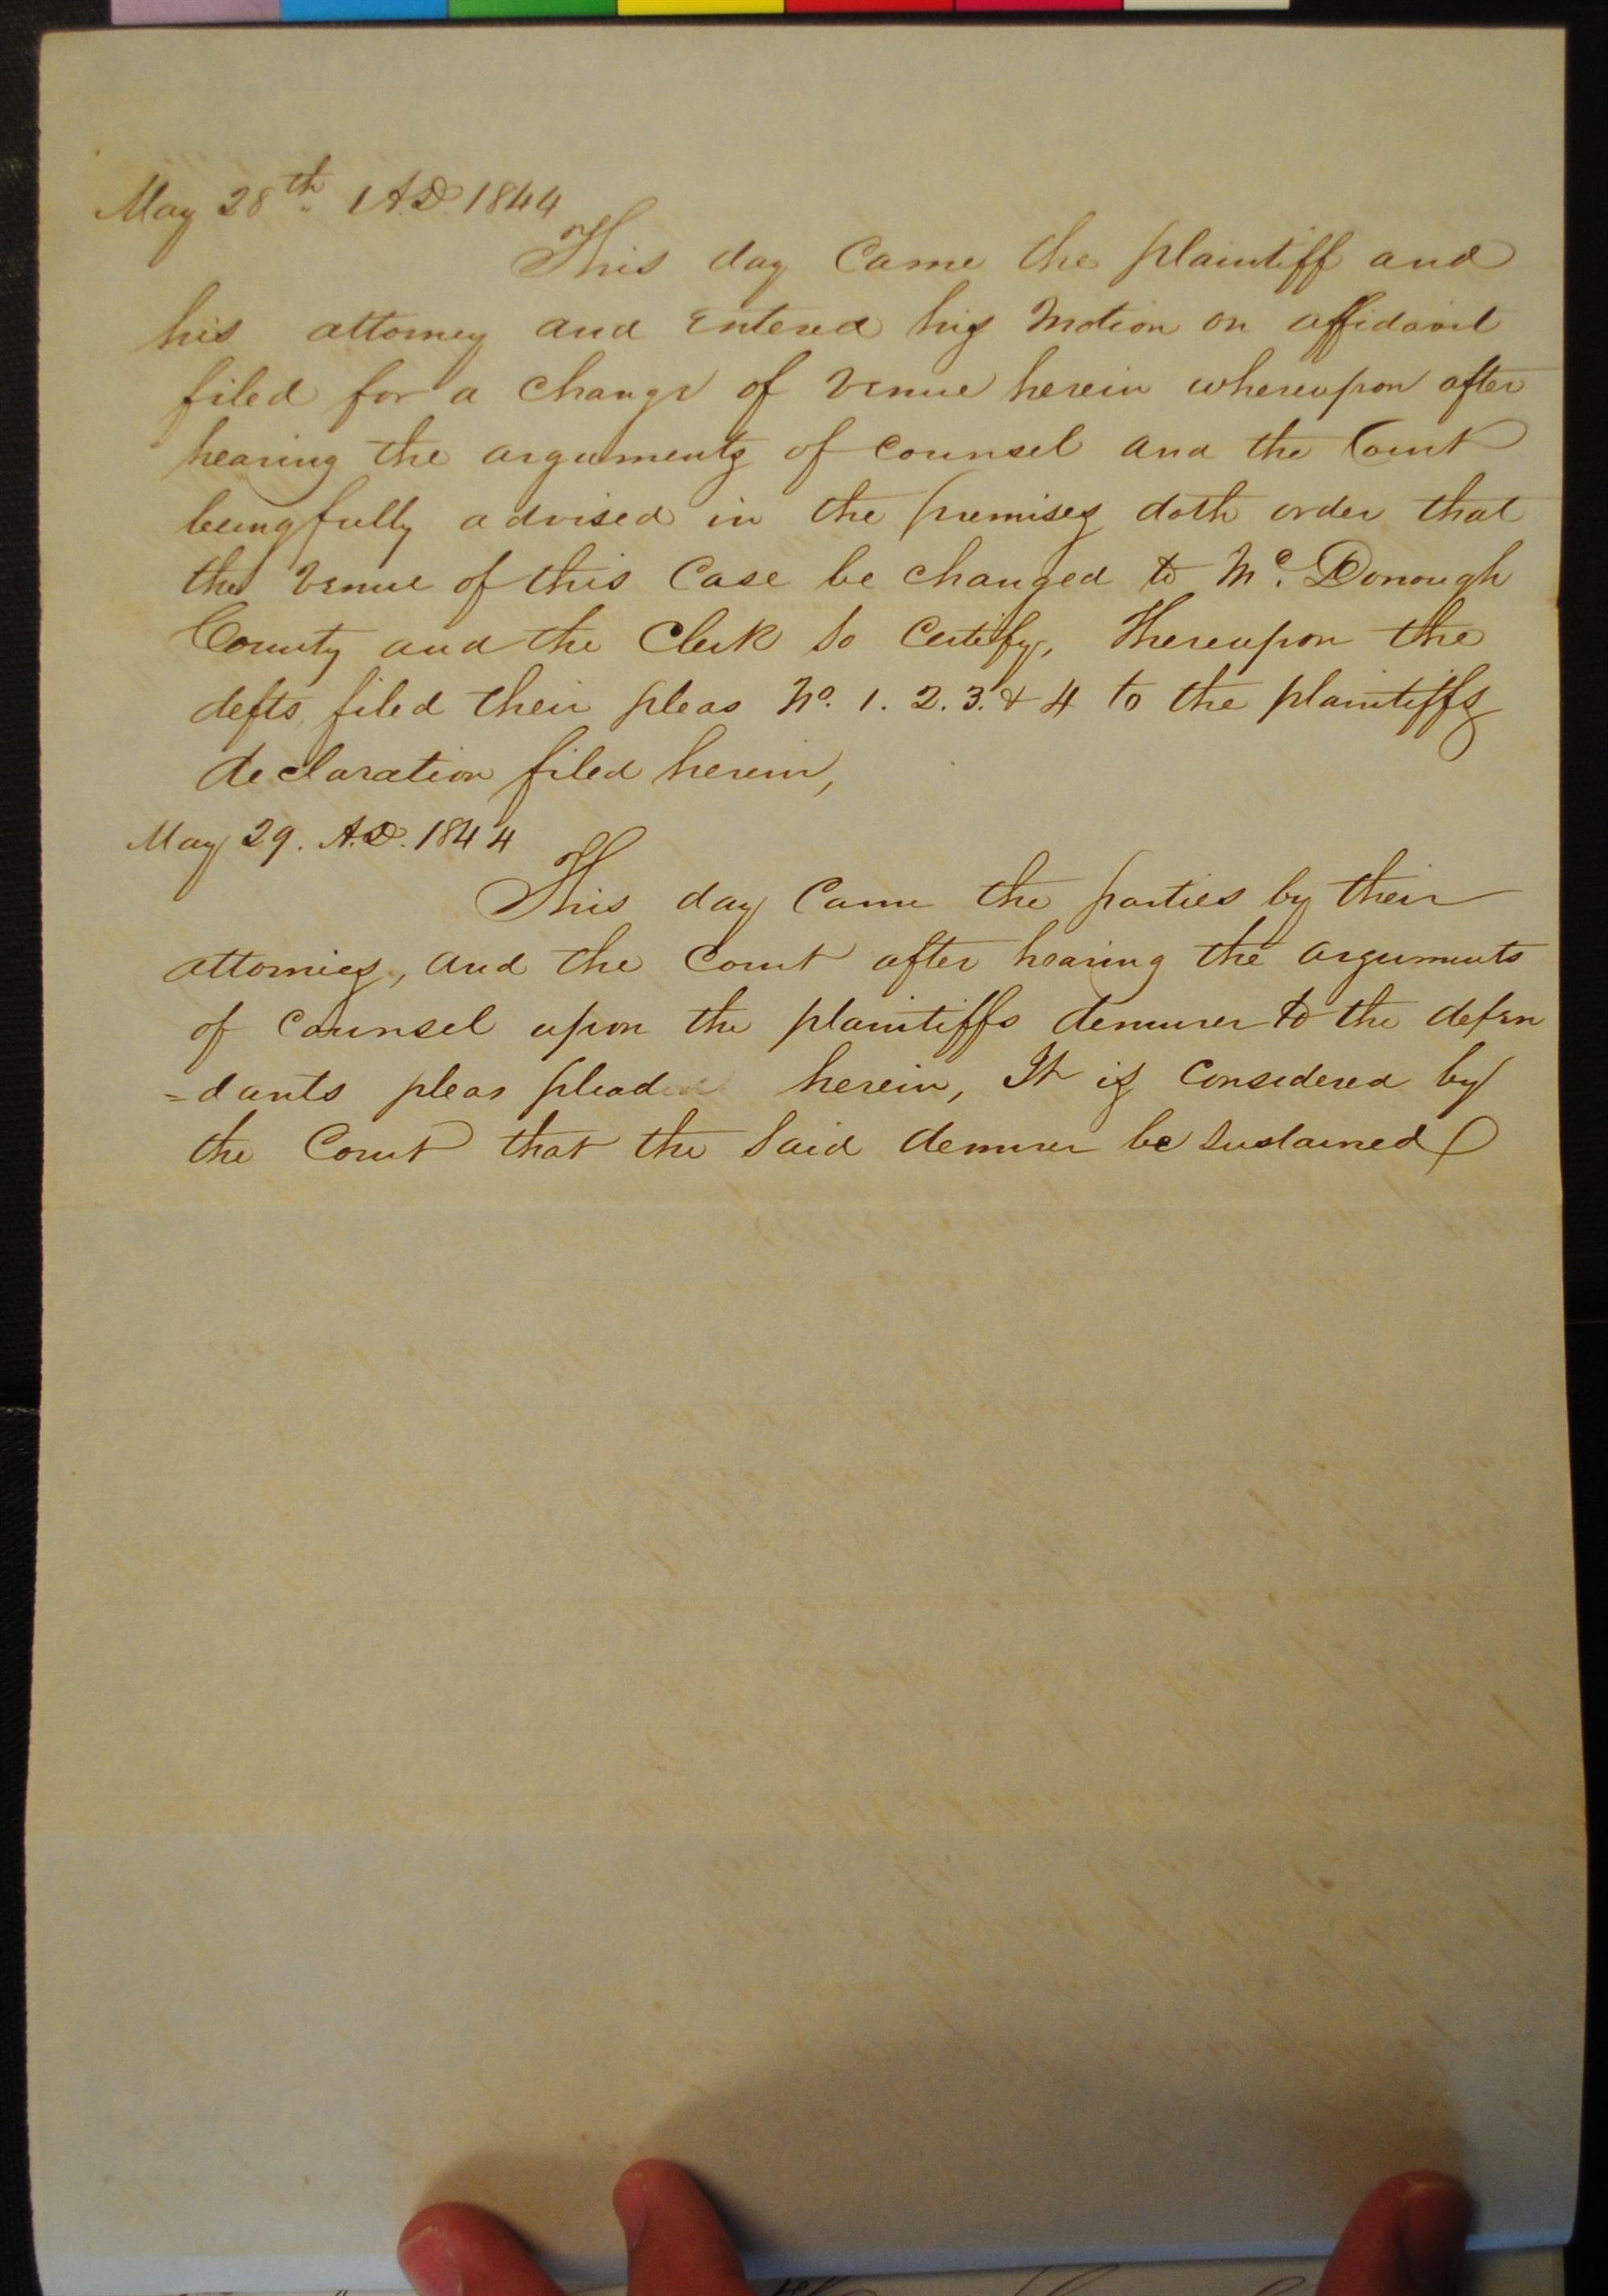 May 28th 1 A.D. 1844
This day Came the plaintiff and
his attorney and entered his Motion on affidavit
filed for a change of venue herein whereupon after
hearing the arguments of counsel and the Court
being fully advised in the premises doth order that
the venue of this Case be changed to Mc. Donough
County and the Clerk So Certify, Thereupon the
defts, filed their pleas No. 1. 2. 3. & 4 to the plaintiffs
declaration filed herein,
May 29. A.D. 1844
This day Came the parties by their
attornies, and the Court after hearing the arguments
of Counsel upon the plaintiffs demurer to the defen
=dants pleas pleaded herein, It is Considered by
the Court that the Said demurer be Sustained